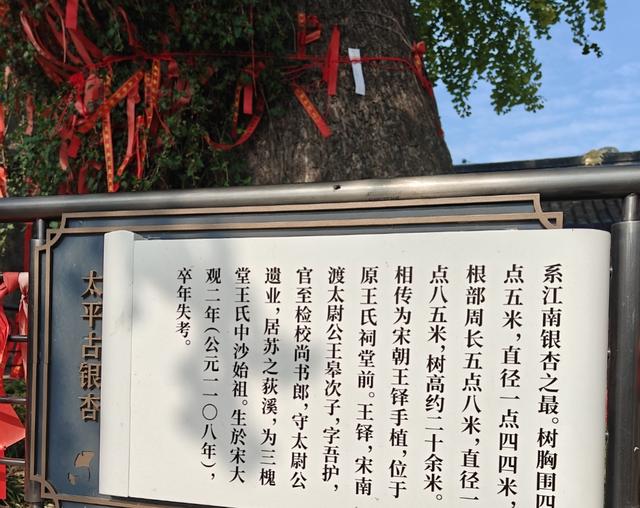 系江南银杏之最。树胸围四
点五米，直径一点四四米，
根部周长五点八米，直径一
点八五米，树高约二十余米。
相传为宋朝王铎手植，位于
原王氏祠堂前。王铎，宋南
渡太尉公王皋次子，字吾护，
官至检校尚书郎，守太尉公
遗业，居苏之荻溪，为三槐
堂王氏中沙始祖。生於宋大
观二年（公元一一〇八年），
卒年失考。
太平古银杏